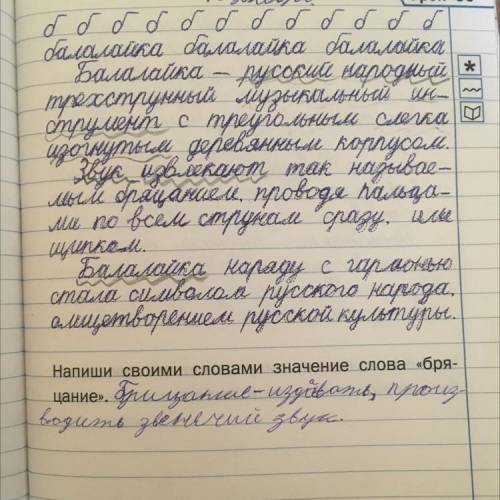 б б б б б б б б б б б б
балалайка балалайка балалайка
Балалайка – русский народный
трёхструнный музыкальный ин-
струмент с треугольным слегка
изогнутым деревянным корпусом.
Звук извлекают так называе-
мым бряцанием, проводя пальца-
ми по всем струнам сразу, или
щипком.
Балалайка наряду с гармонью
стала символом русского народа,
олицетворением русской культуры.
Напиши своими словами значение слова «бря-
цание». Брицание-издовать, произ
водить звенячий звук.